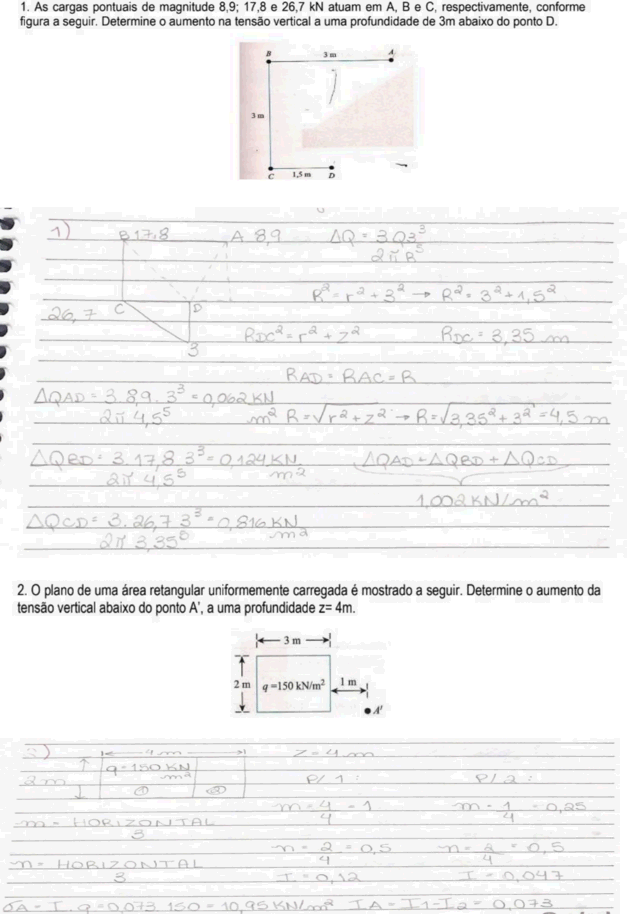 1. As cargas pontuais de magnitude 8,9; 17,8 e 26,7 kN atuam em A, B e C, respectivamente, conforme
figura a seguir. Determine o aumento na tensão vertical a uma profundidade de 3m abaixo do ponto D.
B 3 m A
3 m
C 1,5 m D
1) B 17,8 A 8,9 ΔQ = 3Q3³
2π R⁵
R² = r² + 3² → R² = 3² + 1,5²
26,7 C D
RDC² = r² + z² RDC = 3,35 m
3
RAD = RAC = R
ΔQAD = 3.8,9.3³ = 0,062 KN
2π 4,5⁵ m² R = √r² + z² → R = √3,35² + 3² = 4,5 m
ΔQBD = 3.17,8 3³ = 0,124 KN ΔQAD + ΔQBD + ΔQCD
2π 4,5⁵ m²
1,002 KN/m²
ΔQCD = 3.26,7 3³ = 0,816 KN
2π 3,35⁵ m²
2. O plano de uma área retangular uniformemente carregada é mostrado a seguir. Determine o aumento da
tensão vertical abaixo do ponto A', a uma profundidade z= 4m.
3 m
2 m q =150 kN/m² 1 m
A'
2) 4 m z = 4 m
q = 150 KN
m²
2 m P/ 1: P/ 2:
① ②
m = 4 = 1 m = 1 = 0,25
4 4
m = HORIZONTAL
3
n = 2 = 0,5 n = 2 = 0,5
4 4
n = HORIZONTAL
3 I = 0,12 I = 0,047
σA = I.q = 0,073 150 = 10,95 KN/m² IA = I1 - I2 = 0,073